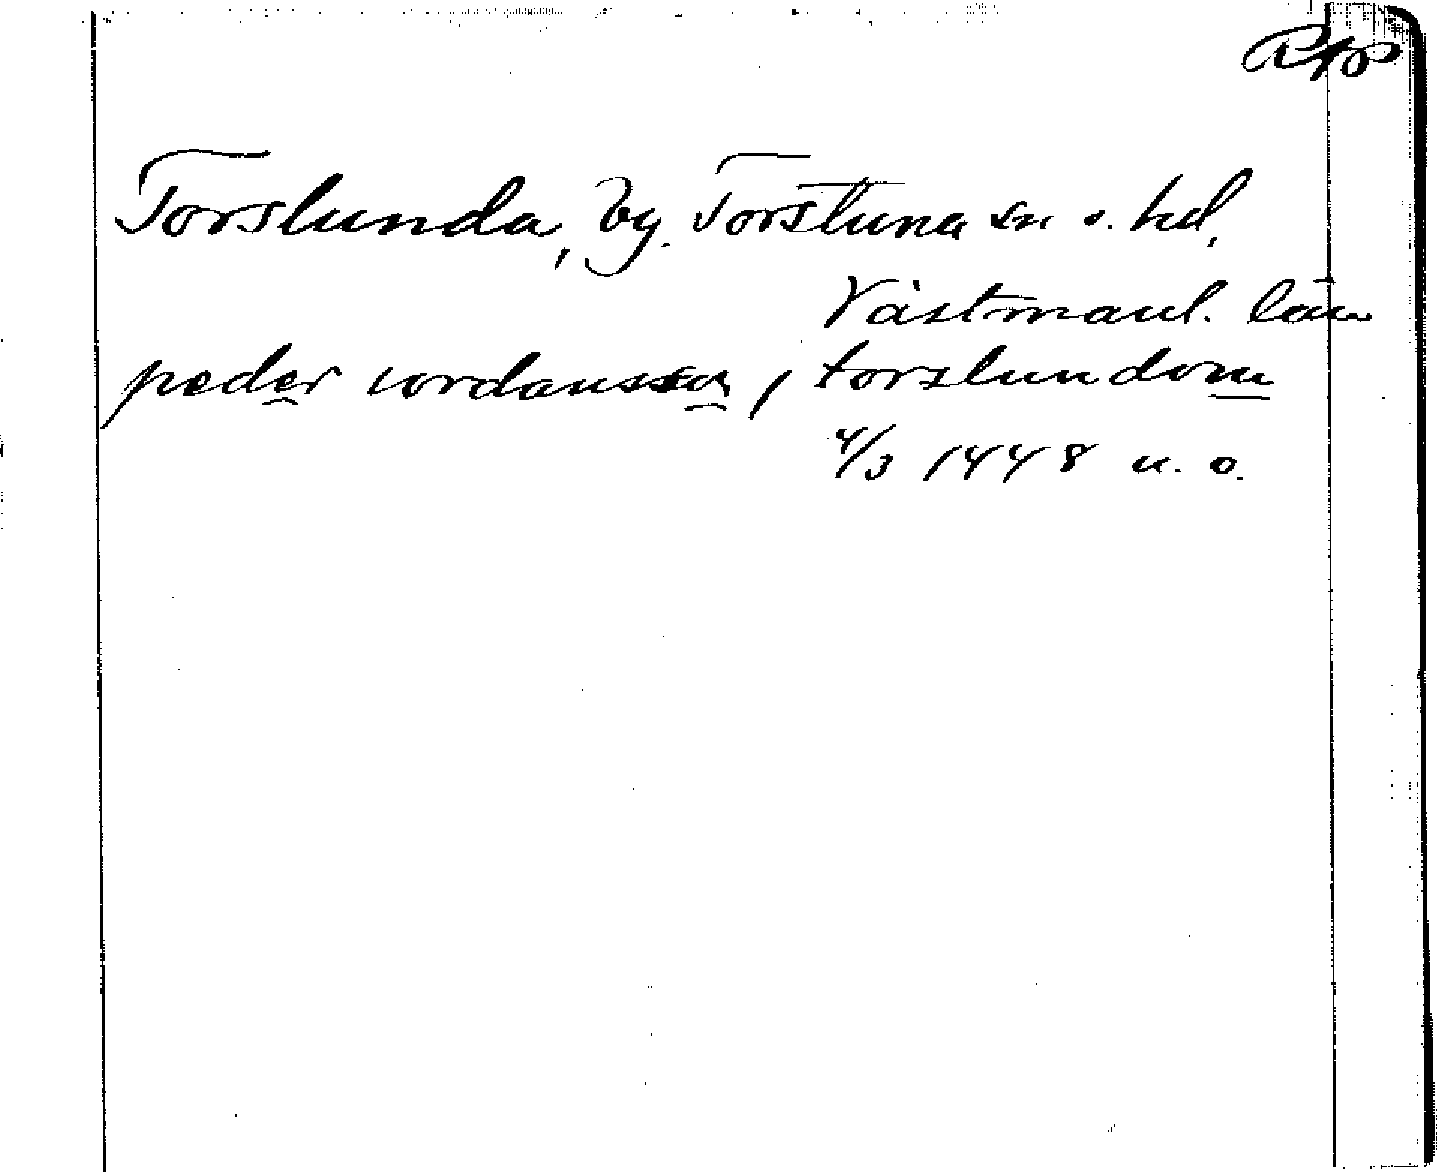 Rap
Torslunda, by. Torstuna sn o. hd,
Västmanl. län
peder iordansson, i torslundom
4/3 1448 u. o.